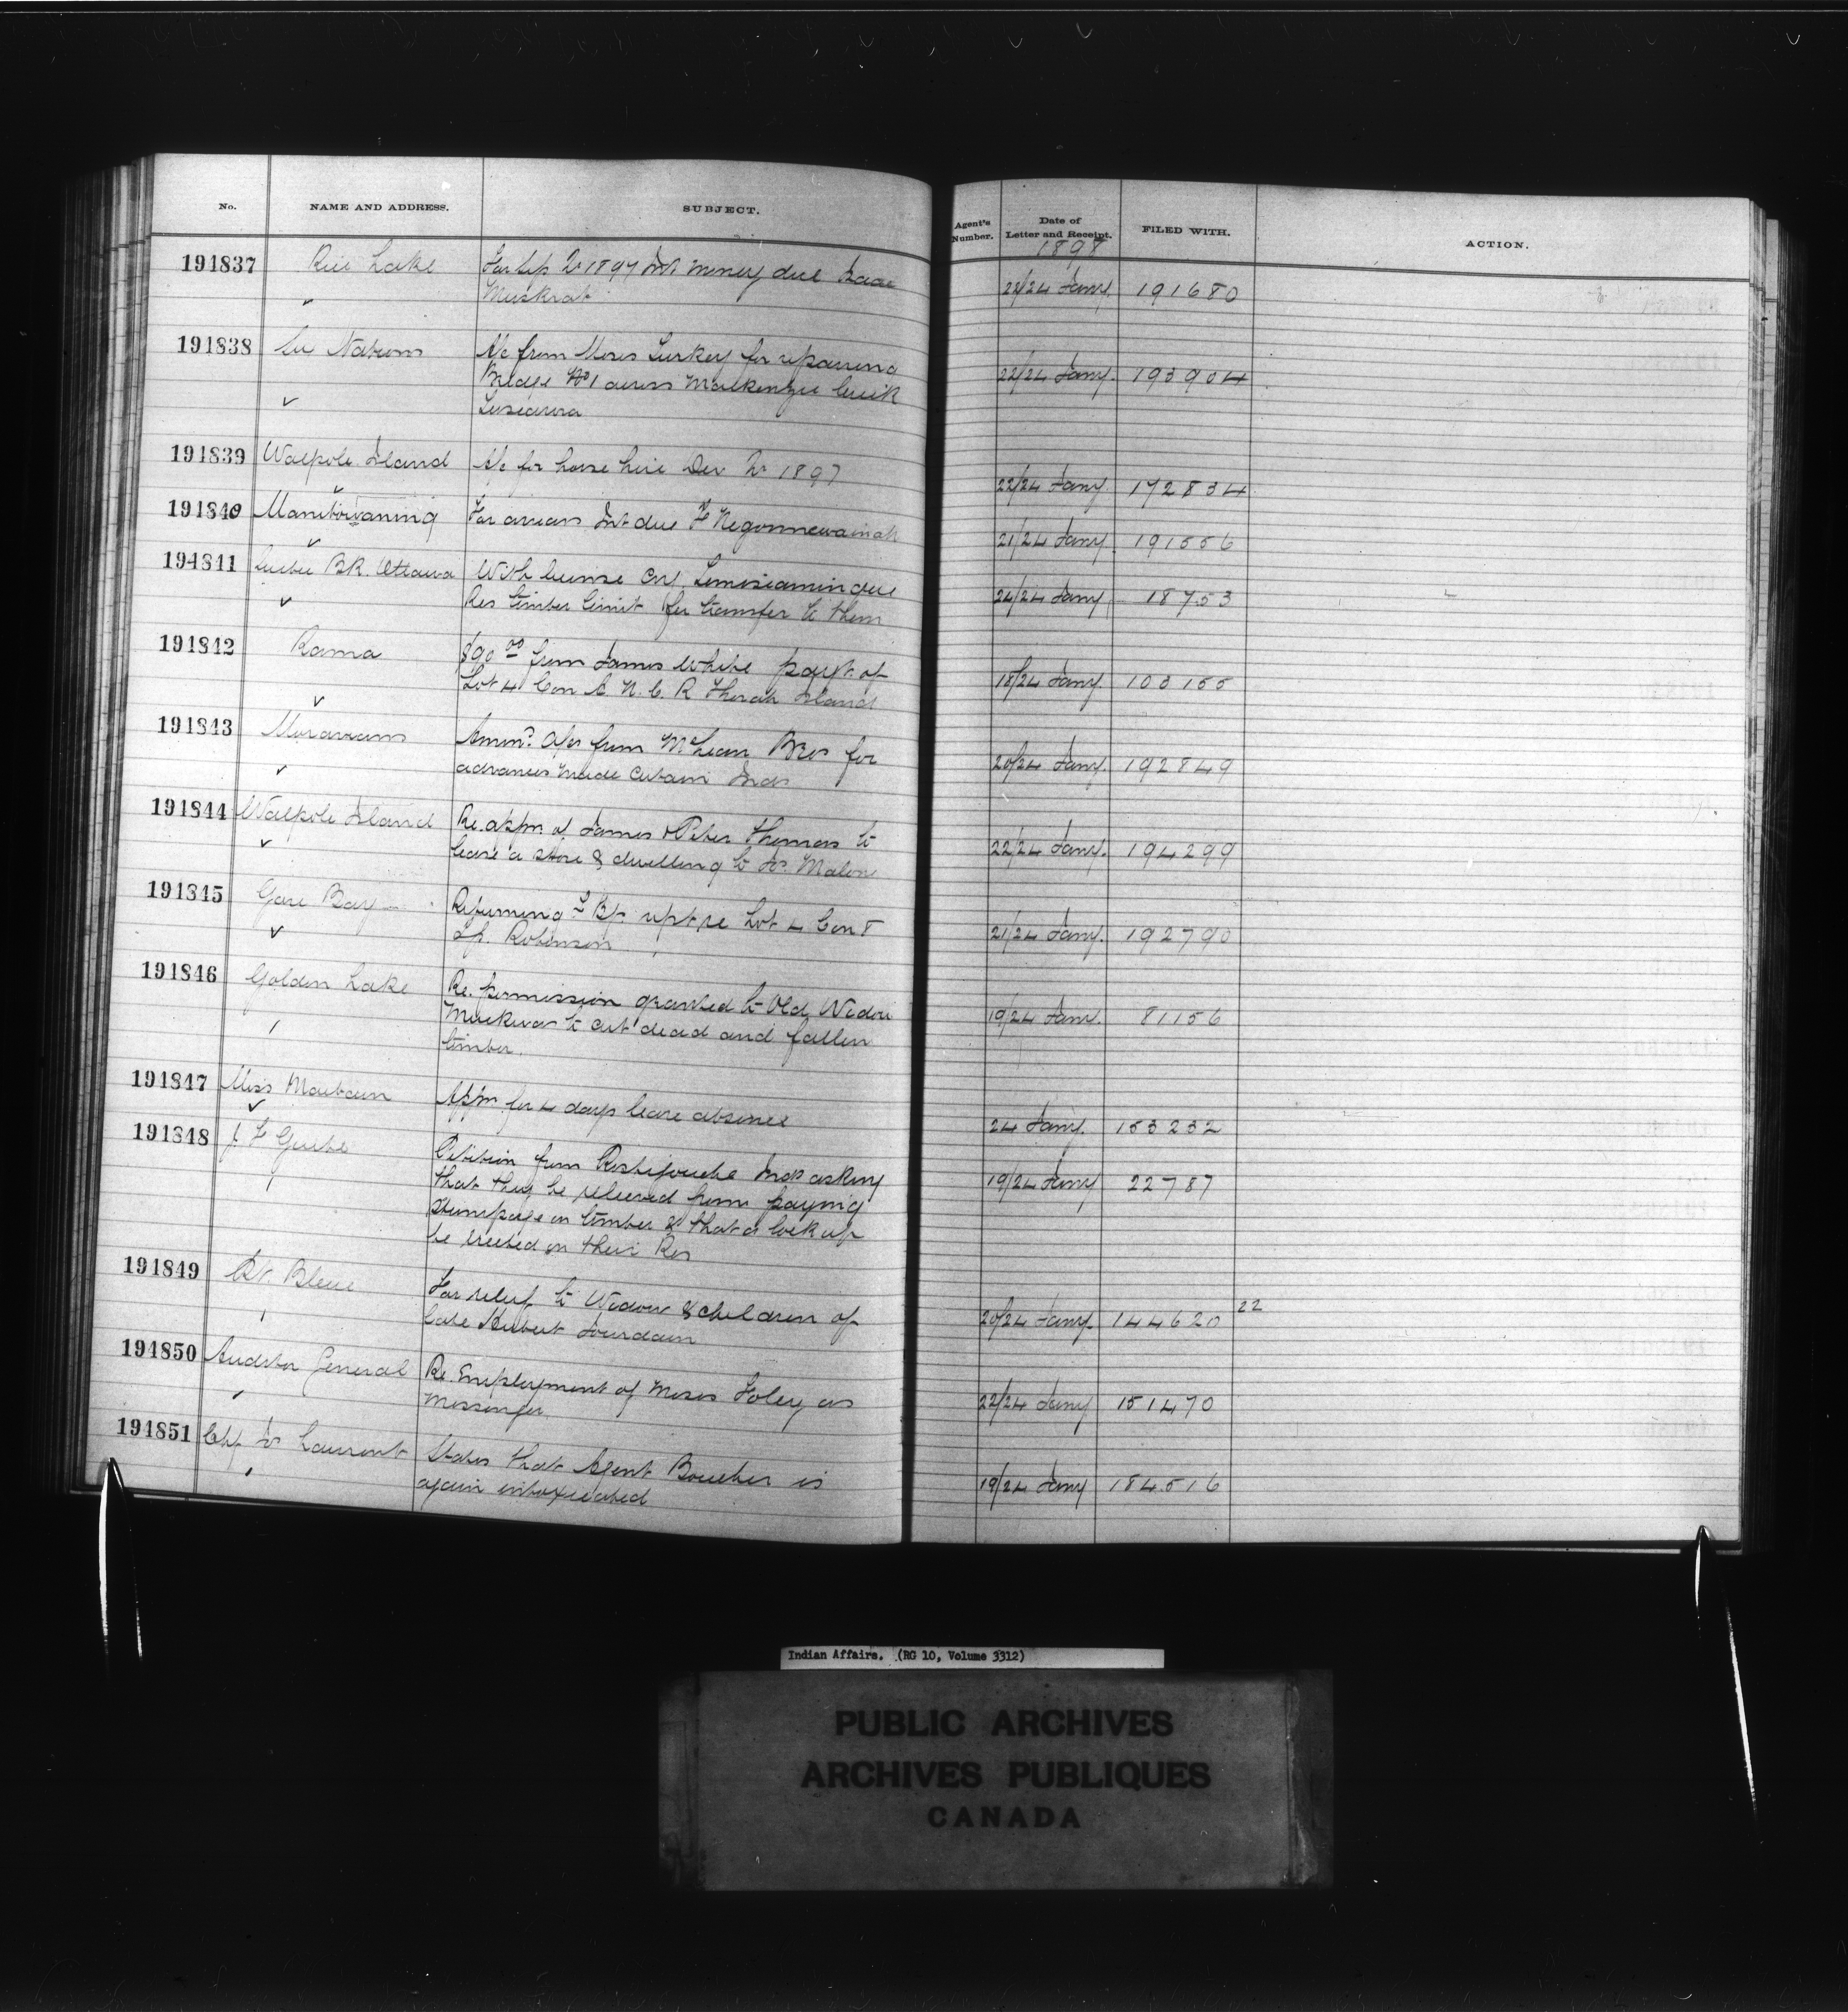 No. NAME AND ADDRESS. SUBJECT. Agent's Number. Date of Letter and Receipt. FILED WITH. ACTION.
1898
191837 Rice Lake For Sep Qr 1897 Int money due Isaac 22/24 Jany. 191680
Muskrat
191838 Six Nations A/c from Moses Turkey for repairing 22/24 Jany. 193904
Bridge No 1 across Mackenzie Creek
Tuscarora
191839 Walpole Island A/c for horse hire Dec Qr 1897 22/24 Jany. 172834
191840 Manitowaning For arrears Int due F Negonnewainah 21/24 Jany. 191556
194841 Quebec BK. Ottawa With license Temiscamingue 24/24 Jany 18753
Res timber limit for transfer to them
191842 Rama $90 00 from James White payt of 18/24 Jany. 103155
Lot 4 Con A. N. C. R Thorah Island
191843 Moravians A/cs from McLean Bros for 20/24 Jany. 192849
advances made certain Inds
191844 Walpole Island Re. appn of James & Peter Thomas to 22/24 Jany. 194299
lease a store & dwelling to Malone
191845 Gore Bay Returning re Lot 4 Con 21/24 Jany. 192790
Robinson
191846 Golden Lake Re. permission granted to Old Widow 19/24 Jany. 81156
to cut dead and fallen
timber.
191847 Miss Appn for 4 days leave absence 24 Jany. 153232
191848 Petition from Restigouche Inds asking 19/24 Jany 22787
that they be relieved from paying
stumpage on timber & that a lock up
be erected on their Res
191849 Pt. Bleue For relief to Widow & children of 20/24 Jany. 144620 22
late Hubert Jourdain
194850 Auditor General Re. Employment of Moses Foley as 22/24 Jany 151470
Messenger
194851 Chf Laurent States that Agent Boucher is 19/24 Jany 184516
again intoxicated
Indian Affairs. (RG 10, Volume 3312)
PUBLIC ARCHIVES
ARCHIVES PUBLIQUES
CANADA